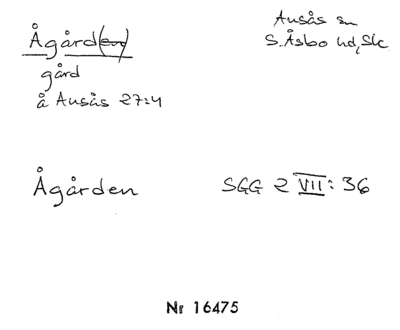 Ågård(en)
Ausås sn
S. Åsbo hd, Sk
gård
å Ausås 27:4
Ågården
SGG 2 VII: 36
Nr 16475